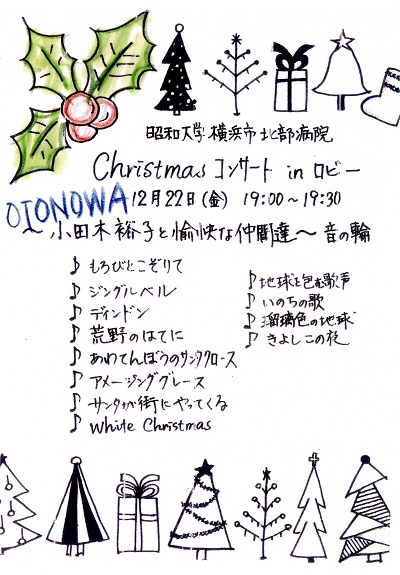 昭和大学横浜市北部病院
Christmas コンサート in ロビー
OTONOWA 12月22日(金) 19:00〜19:30
〜小田木裕子と愉快な仲間達〜 音の輪
♪ もろびとこぞりて
♪ ジングルベル
♪ ディンドン
♪ 荒野のはてに
♪ あわてんぼうのサンタクロース
♪ アメージンググレース
♪ サンタが街にやってくる
♪ White Christmas
♪ 地球を包む歌声
♪ いのちの歌
♪ 瑠璃色の地球
♪ きよしこの夜